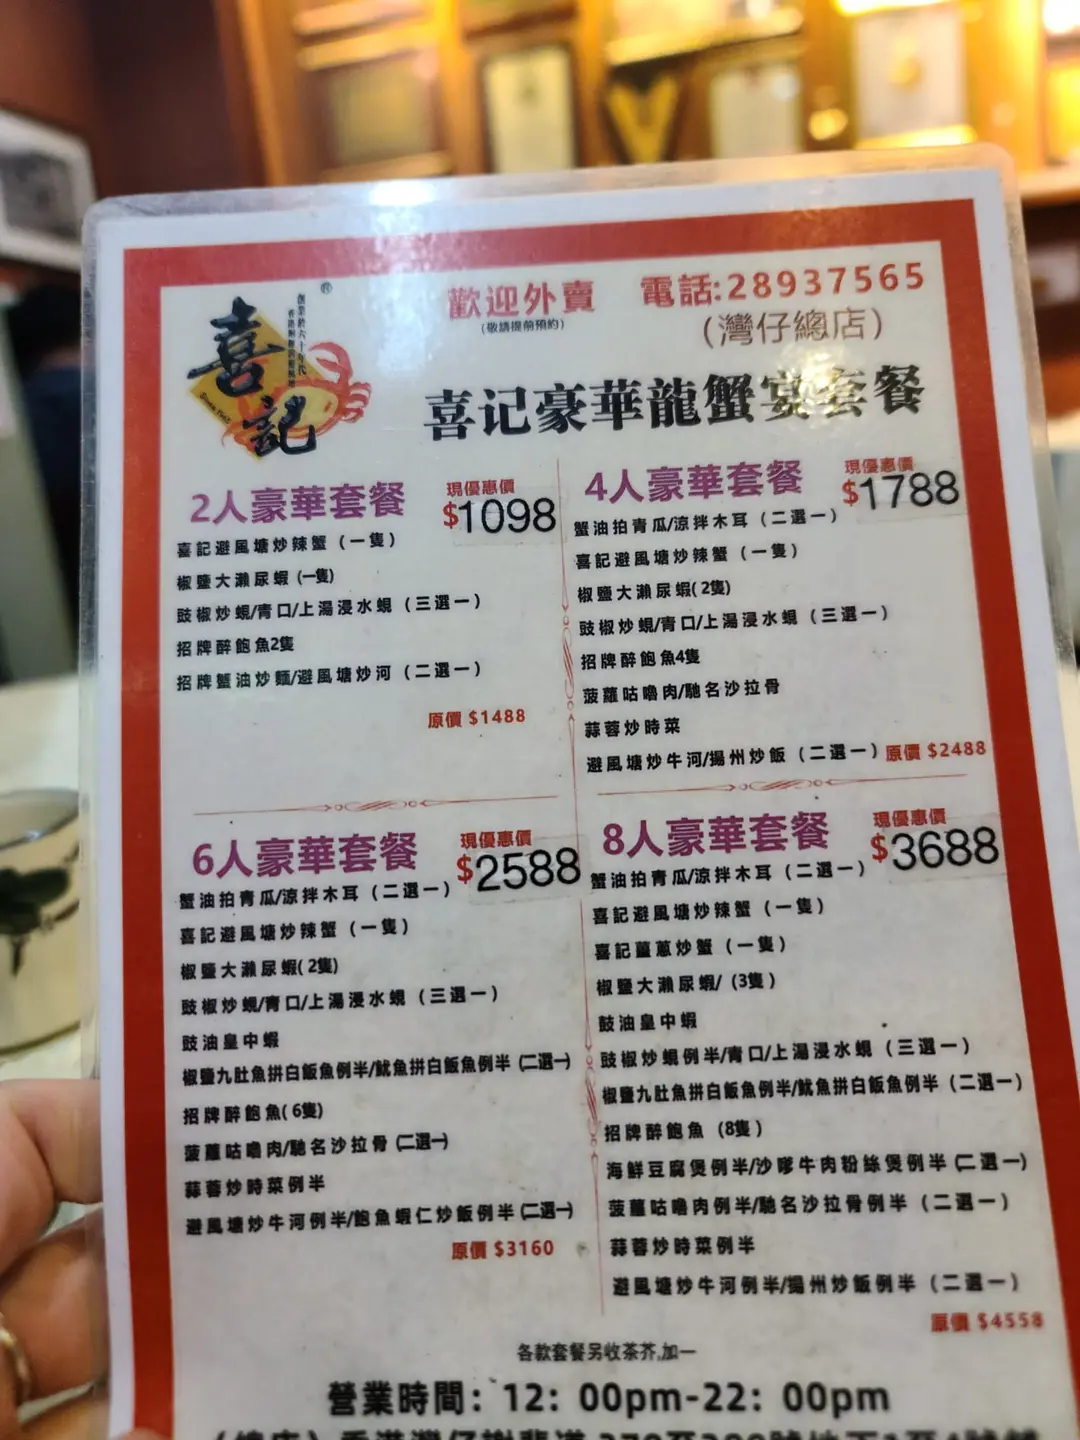 喜記
創業於六十年代
Since 1965
歡迎外賣
(敬請提前預約)
電話:28937565
(灣仔總店)
喜记豪華龍蟹宴套餐
2人豪華套餐
現優惠價
$1098
喜記避風塘炒辣蟹（一隻）
椒鹽大瀨尿蝦 (一隻)
豉椒炒蜆/青口/上湯浸水蜆（三選一）
招牌醉鮑魚2隻
招牌蟹油炒麵/避風塘炒河（二選一）
原價 $1488
4人豪華套餐
現優惠價
$1788
蟹油拍青瓜/涼拌木耳（二選一）
喜記避風塘炒辣蟹（一隻）
椒鹽大瀨尿蝦( 2隻)
豉椒炒蜆/青口/上湯浸水蜆（三選一）
招牌醉鮑魚4隻
菠蘿咕嚕肉/馳名沙拉骨
蒜蓉炒時菜
避風塘炒牛河/揚州炒飯（二選一）原價 $2488
6人豪華套餐
現優惠價
$2588
蟹油拍青瓜/涼拌木耳（二選一）
喜記避風塘炒辣蟹（一隻）
椒鹽大瀨尿蝦( 2隻)
豉椒炒蜆/青口/上湯浸水蜆（三選一）
豉油皇中蝦
椒鹽九肚魚拼白飯魚例半/魷魚拼白飯魚例半 (二選一)
招牌醉鮑魚( 6隻)
菠蘿咕嚕肉/馳名沙拉骨 (二選一)
蒜蓉炒時菜例半
避風塘炒牛河例半/鮑魚蝦仁炒飯例半 (二選一)
原價 $3160
8人豪華套餐
現優惠價
$3688
蟹油拍青瓜/涼拌木耳（二選一）
喜記避風塘炒辣蟹（一隻）
喜記薑蔥炒蟹（一隻）
椒鹽大瀨尿蝦/（3隻）
豉油皇中蝦
豉椒炒蜆例半/青口/上湯浸水蜆（三選一）
椒鹽九肚魚拼白飯魚例半/魷魚拼白飯魚例半（二選一）
招牌醉鮑魚（8隻）
海鮮豆腐煲例半/沙嗲牛肉粉絲煲例半 (二選一)
菠蘿咕嚕肉例半/馳名沙拉骨例半（二選一）
蒜蓉炒時菜例半
避風塘炒牛河例半/揚州炒飯例半（二選一）
原價 $4558
各款套餐另收茶芥,加一
營業時間：12：00pm-22：00pm